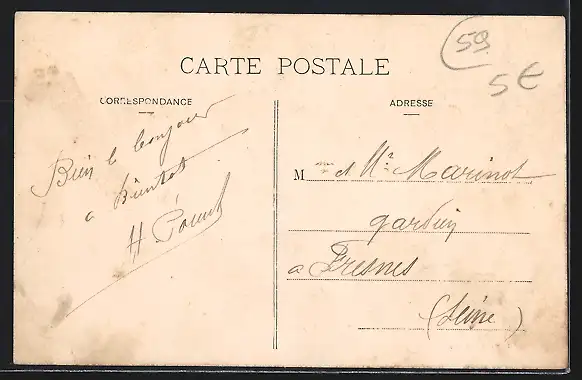 59
5€
CARTE POSTALE
CORRESPONDANCE
ADRESSE
Bien le bonjour
a Bientot
H
Mme et Mr Marinot
gardien
a Fresnes
(Seine)